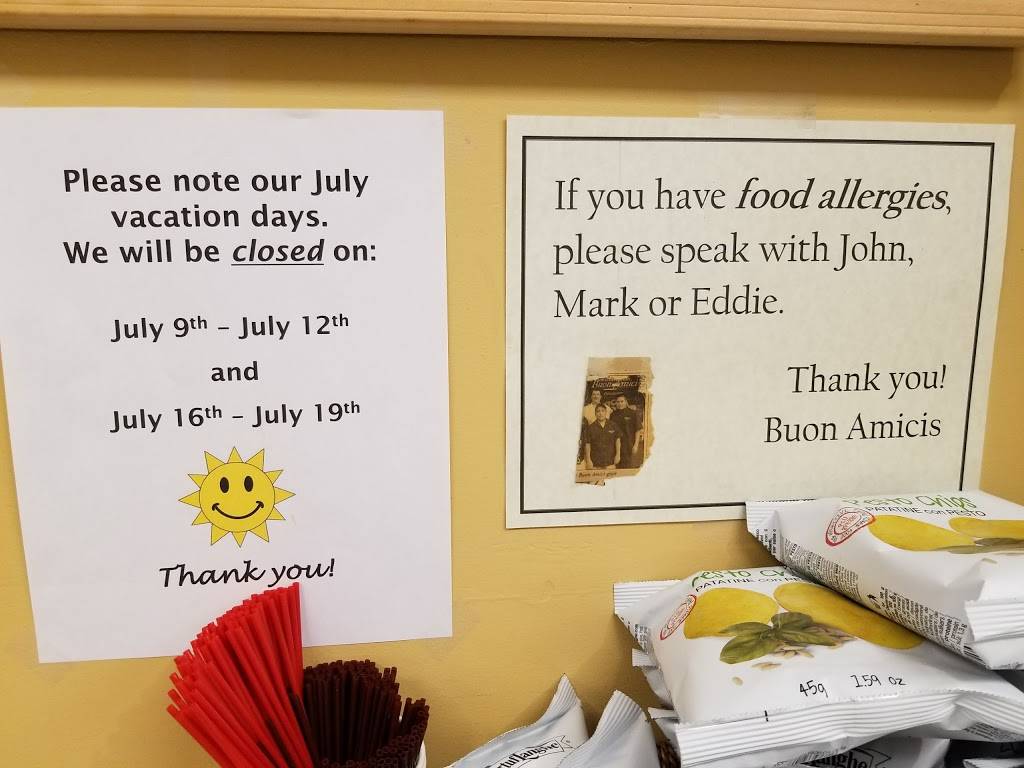 Please note our July
vacation days.
We will be closed on:
July 9th – July 12th
and
July 16th – July 19th
Thank you!
If you have food allergies,
please speak with John,
Mark or Eddie.
Thank you!
Buon Amicis
Buon Amici
Pesto Chips
PATATINE CON PESTO
Pesto
PATATINE CON
45g 1.59 oz